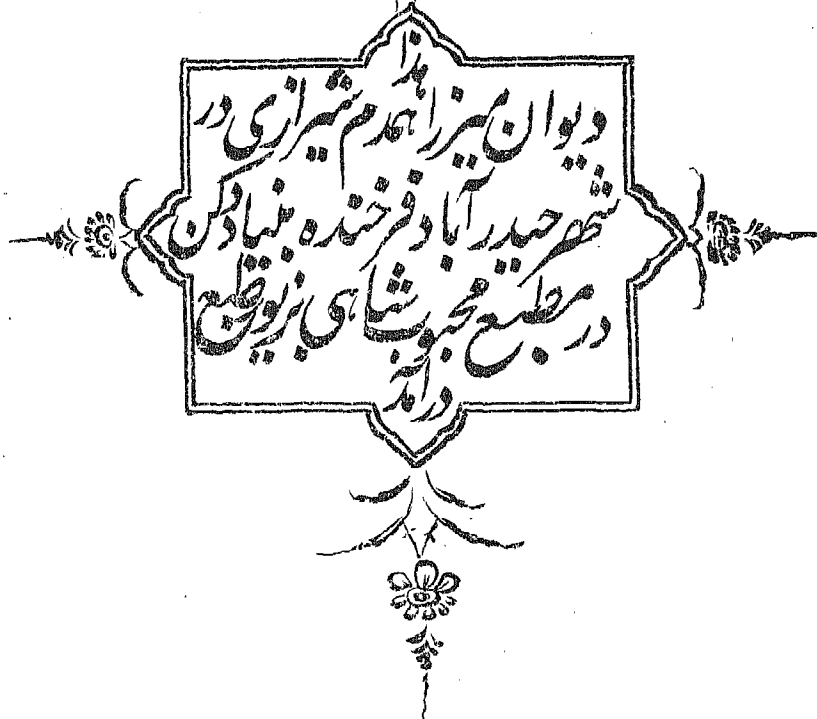 هذا
دیوان میرزا همدم شیرازی در
شهر حیدرآباد فرخنده بنیاد دکن
در مطبع محبوب شاهی بزیور طبع
درآمد